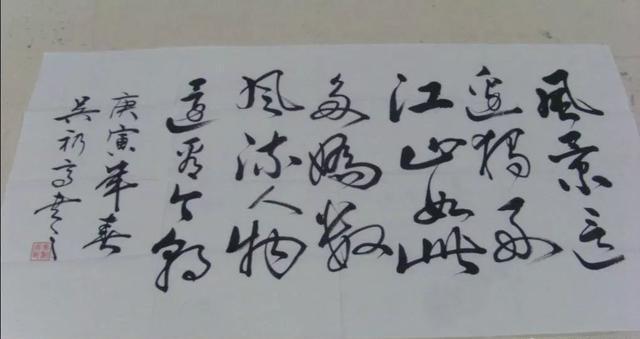 風景這
邊獨好
江山如此
多嬌數
風流人物
還看今朝
庚寅年春
吳高書